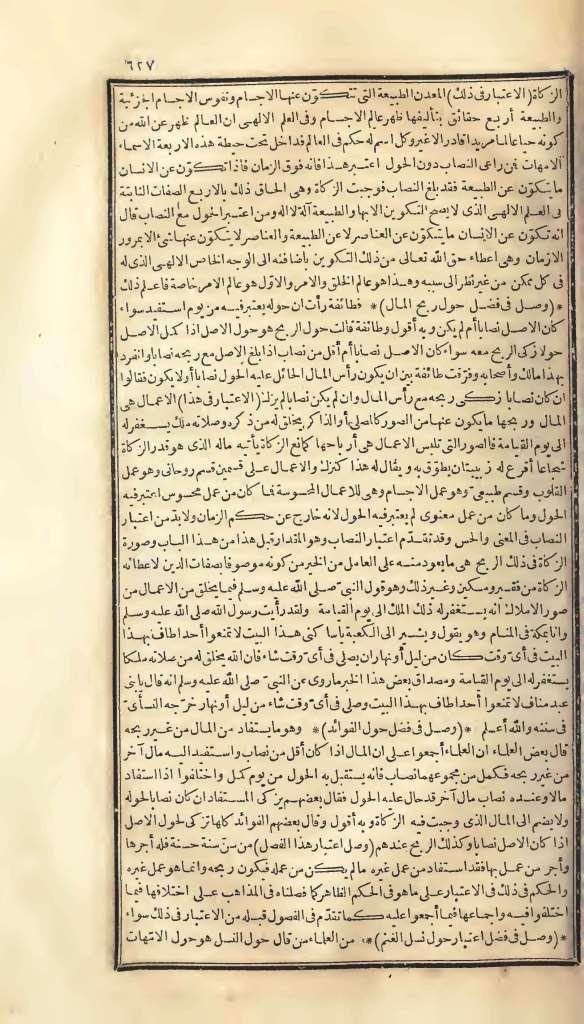 ٦٢٧
الزكاة (الاعتبار في ذلك) المعدن الطبيعة التي تتكوّن عنها الاجسام ونفوس الاجسام الجزئية
والطبيعة أربع حقائق بتأليفها ظهر عالم الاجسام وفي العلم الالهى ان العالم ظهر عن الله من
كونه حيا عالما مريدا قادرا لا غير وكل اسم له حكم في العالم فداخل تحت حيطة هذه الاربعة الاسماء
الامهات فمن راعى النصاب دون الحول اعتبر هذا فانه فوق الزمان فاذا تكوّن عن الانسان
ما يتكوّن عن الطبيعة فقد بلغ النصاب فوجبت الزكاة وهى الحاق ذلك بالاربع الصفات الثابتة
في العلم الالهى الذى لا يصح التكوين الا بها والطبيعة آلة لا اله ومن اعتبر الحول مع النصاب قال
انه تكوّن عن الانسان ما يتكوّن عن العناصر لا عن الطبيعة والعناصر لا يتكوّن عنها شئ الا بمرور
الازمان وهى اعطاء حق الله تعالى من ذلك التكوين باضافته الى الوجه الخاص الالهى الذى له
فى كل ممكن من غير نظر الى سببه وهذا هو عالم الخلق والامر والاوّل هو عالم الامر خاصة فاعلم ذلك
*(وصل فى فضل حول ربح المال)* فطائفة رأت ان حوله يعتبر فيه من يوم استفيد سواء
كان الاصل نصابا أم لم يكن وبه أقول وطائفة قالت حول الربح هو حول الاصل اذا كمل الاصل
حولا زكى الربح معه سواء كان الاصل نصابا أم أقل من نصاب اذا بلغ الاصل مع ربحه نصابا وانفرد
بهذا مالك وأصحابه وفرّقت طائفة بين ان يكون رأس المال الحائل عليه الحول نصابا أو لا يكون فقالوا
ان كان نصابا زكى ربحه مع رأس المال وان لم يكن نصابا لم يزكه (الاعتبار فى هذا) الاعمال هى
المال وربحها ما يكون عنها من الصور كالمصلى أو الذاكر يخلق له من ذكره وصلاته ملك يستغفر له
الى يوم القيامة فالصور التى تلبس الاعمال هى أرباحها كمانع الزكاة يأتيه ماله الذى هو قدر الزكاة
شجاعا أقرع له زبيبتان يطوّق به ويقال له هذا كنزك والاعمال على قسمين قسم روحانى وهو عمل
القلوب وقسم طبيعى وهو عمل الاجسام وهى للاعمال المحسوسة فما كان من عمل محسوس اعتبر فيه
الحول وما كان من عمل معنوى لم يعتبر فيه الحول لانه خارج عن حكم الزمان ولا بدّ من اعتبار
النصاب فى المعنى والحس وقد تقدّم اعتبار النصاب وهو المقدار قبل هذا من هذا الباب وصورة
الزكاة فى ذلك الربح هى ما يعود منه على العامل من الخير من كونه موصوفا بصفات الذين لاعطائه
الزكاة من فقير ومسكين وغير ذلك وهو قول النبىّ صلى الله عليه وسلم فيما يخلق من الاعمال من
صور الاملاك انه يستغفر له ذلك الملك الى يوم القيامة ولقد رأيت رسول الله صلى الله عليه وسلم
وأنا بمكة فى المنام وهو يقول ويشير الى الكعبة يا ساكنى هذا البيت لا تمنعوا أحدا طاف بهذا
البيت فى أىّ وقت كان من ليل أو نهار ان يصلى فى أىّ وقت شاء فان الله يخلق له من صلاته ملكا
يستغفر له الى يوم القيامة ومصداق بعض هذا الخبر ما روى عن النبىّ صلى الله عليه وسلم انه قال يا بنى
عبد مناف لا تمنعوا أحدا طاف بهذا البيت وصلى فى أىّ وقت شاء من ليل أو نهار خرّجه النسائىّ
فى سننه والله أعلم *(وصل فى فضل حول الفوائد)* وهو ما يستفاد من المال من غير ربحه
قال بعض العلماء ان العلماء أجمعوا على ان المال اذا كان أقل من نصاب واستفيد اليه مال آخر
من غير ربحه فكمل من مجموعهما نصاب فانه يستقبل به الحول من يوم كمل واختلفوا اذا استفاد
مالا وعنده نصاب مال آخر قد حال عليه الحول فقال بعضهم يزكى المستفاد ان كان نصابا لحوله
ولا يضم الى المال الذى وجبت فيه الزكاة وبه أقول وقال بعضهم الفوائد كلها تزكى لحول الاصل
اذا كان الاصل نصابا وكذلك الربح عندهم (وصل اعتبار هذا الفصل) من سنّ سنة حسنة فله أجرها
وأجر من عمل بها فقد استفاد من عمل غيره ما لم يكن من عمله فيكون ربحه وانما هو عمل غيره
والحكم فى ذلك فى الاعتبار على ما هو فى الحكم الظاهر كما فصلناه فى المذاهب على اختلافها فيما
اختلفوا فيه واجماعها فيما أجمعوا عليه كما تقدّم فى الفصول قبله من الاعتبار فى ذلك سواء
*(وصل فى فضل اعتبار حول نسل الغنم)* من العلماء من قال حول النسل هو حول الامّهات